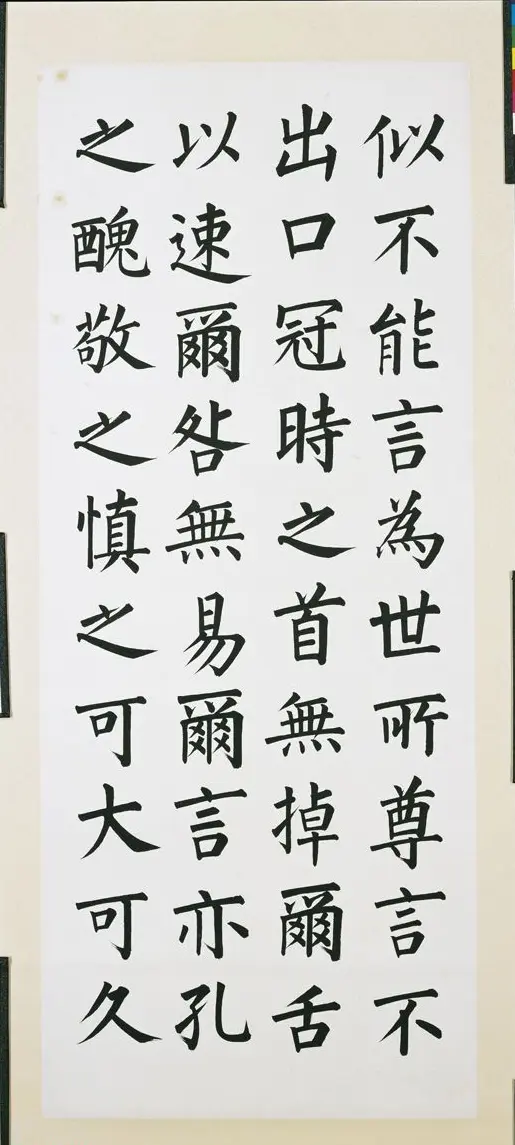 似不能言為世所尊言不
出口冠時之首無掉爾舌
以速爾咎無易爾言亦孔
之醜敬之慎之可大可久